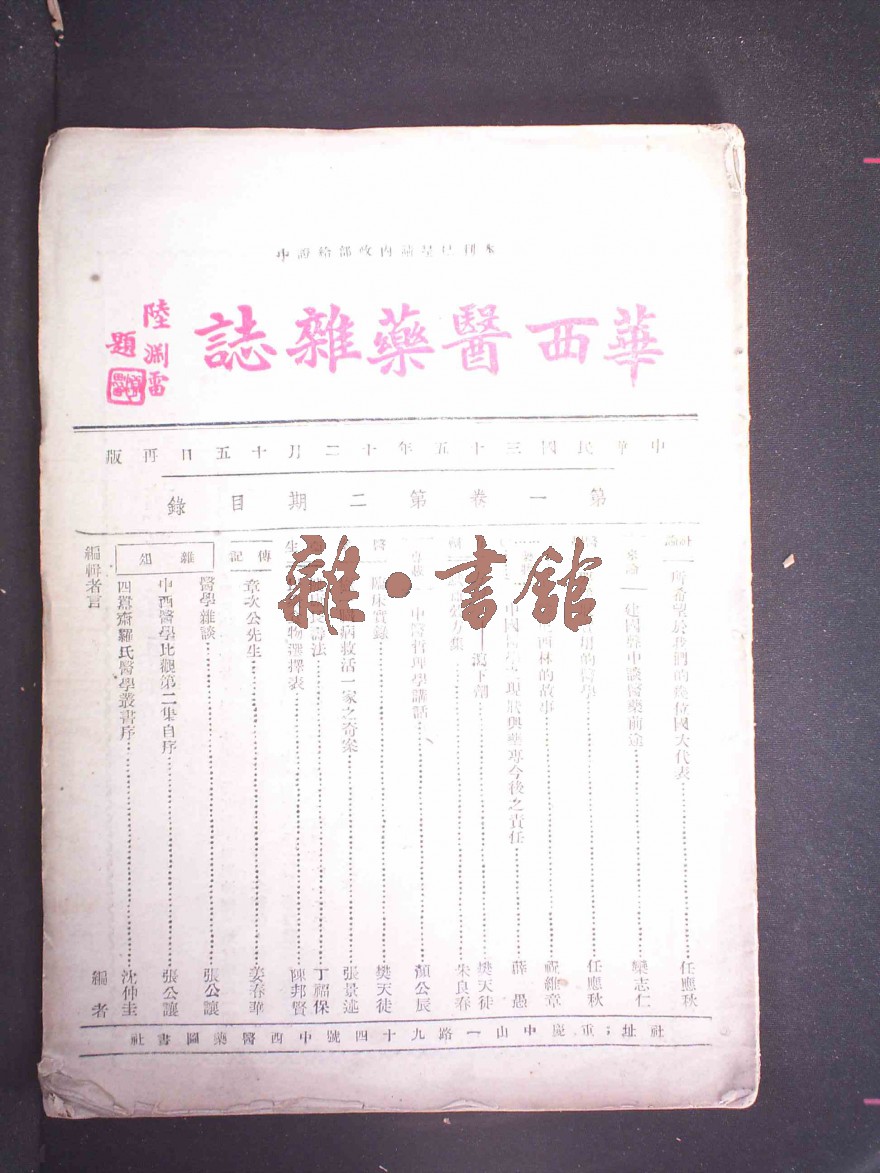 本刊已呈請內政部給證中
華西醫藥雜誌
陸淵雷
題
中華民國三十五年十二月十五日再版
第一卷第二期目錄
社論
所希望於我們的幾位國大代表 任應秋
來論
建國聲中談醫藥前途 欒志仁
的醫學 任應秋
西林的故事 祝維章
中國 現狀與藥專今後之責任 薛愚
瀉下劑 樊天徒
集 朱良春
專載
中醫哲理學講話 顏公辰
醫
臨床實錄 樊天徒
病救活一家之奇案 張景述
壽法 丁福保
生 物選擇表 陳邦賢
傳記
章次公先生 姜春華
雜俎
醫學雜談 張公讓
中西醫學比觀第二集自序 張公讓
四當齋羅氏醫學叢書序 沈仲圭
編輯者言 編者
社址：重慶中山一路九十四號中西醫藥圖書社
雜·書館